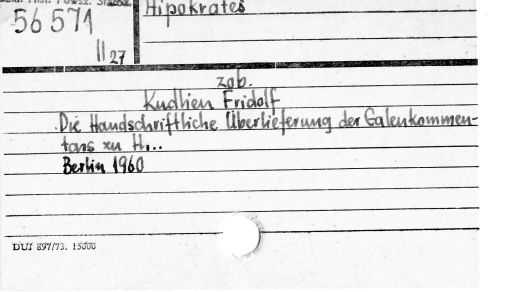 Hipokrates
56 571
II 27
zob.
Kudlien Fridolf
Die Handschriftliche Überlieferung der Galenkommen-
tars zu H...
Berlin 1960
DUJ 897/73. 15000